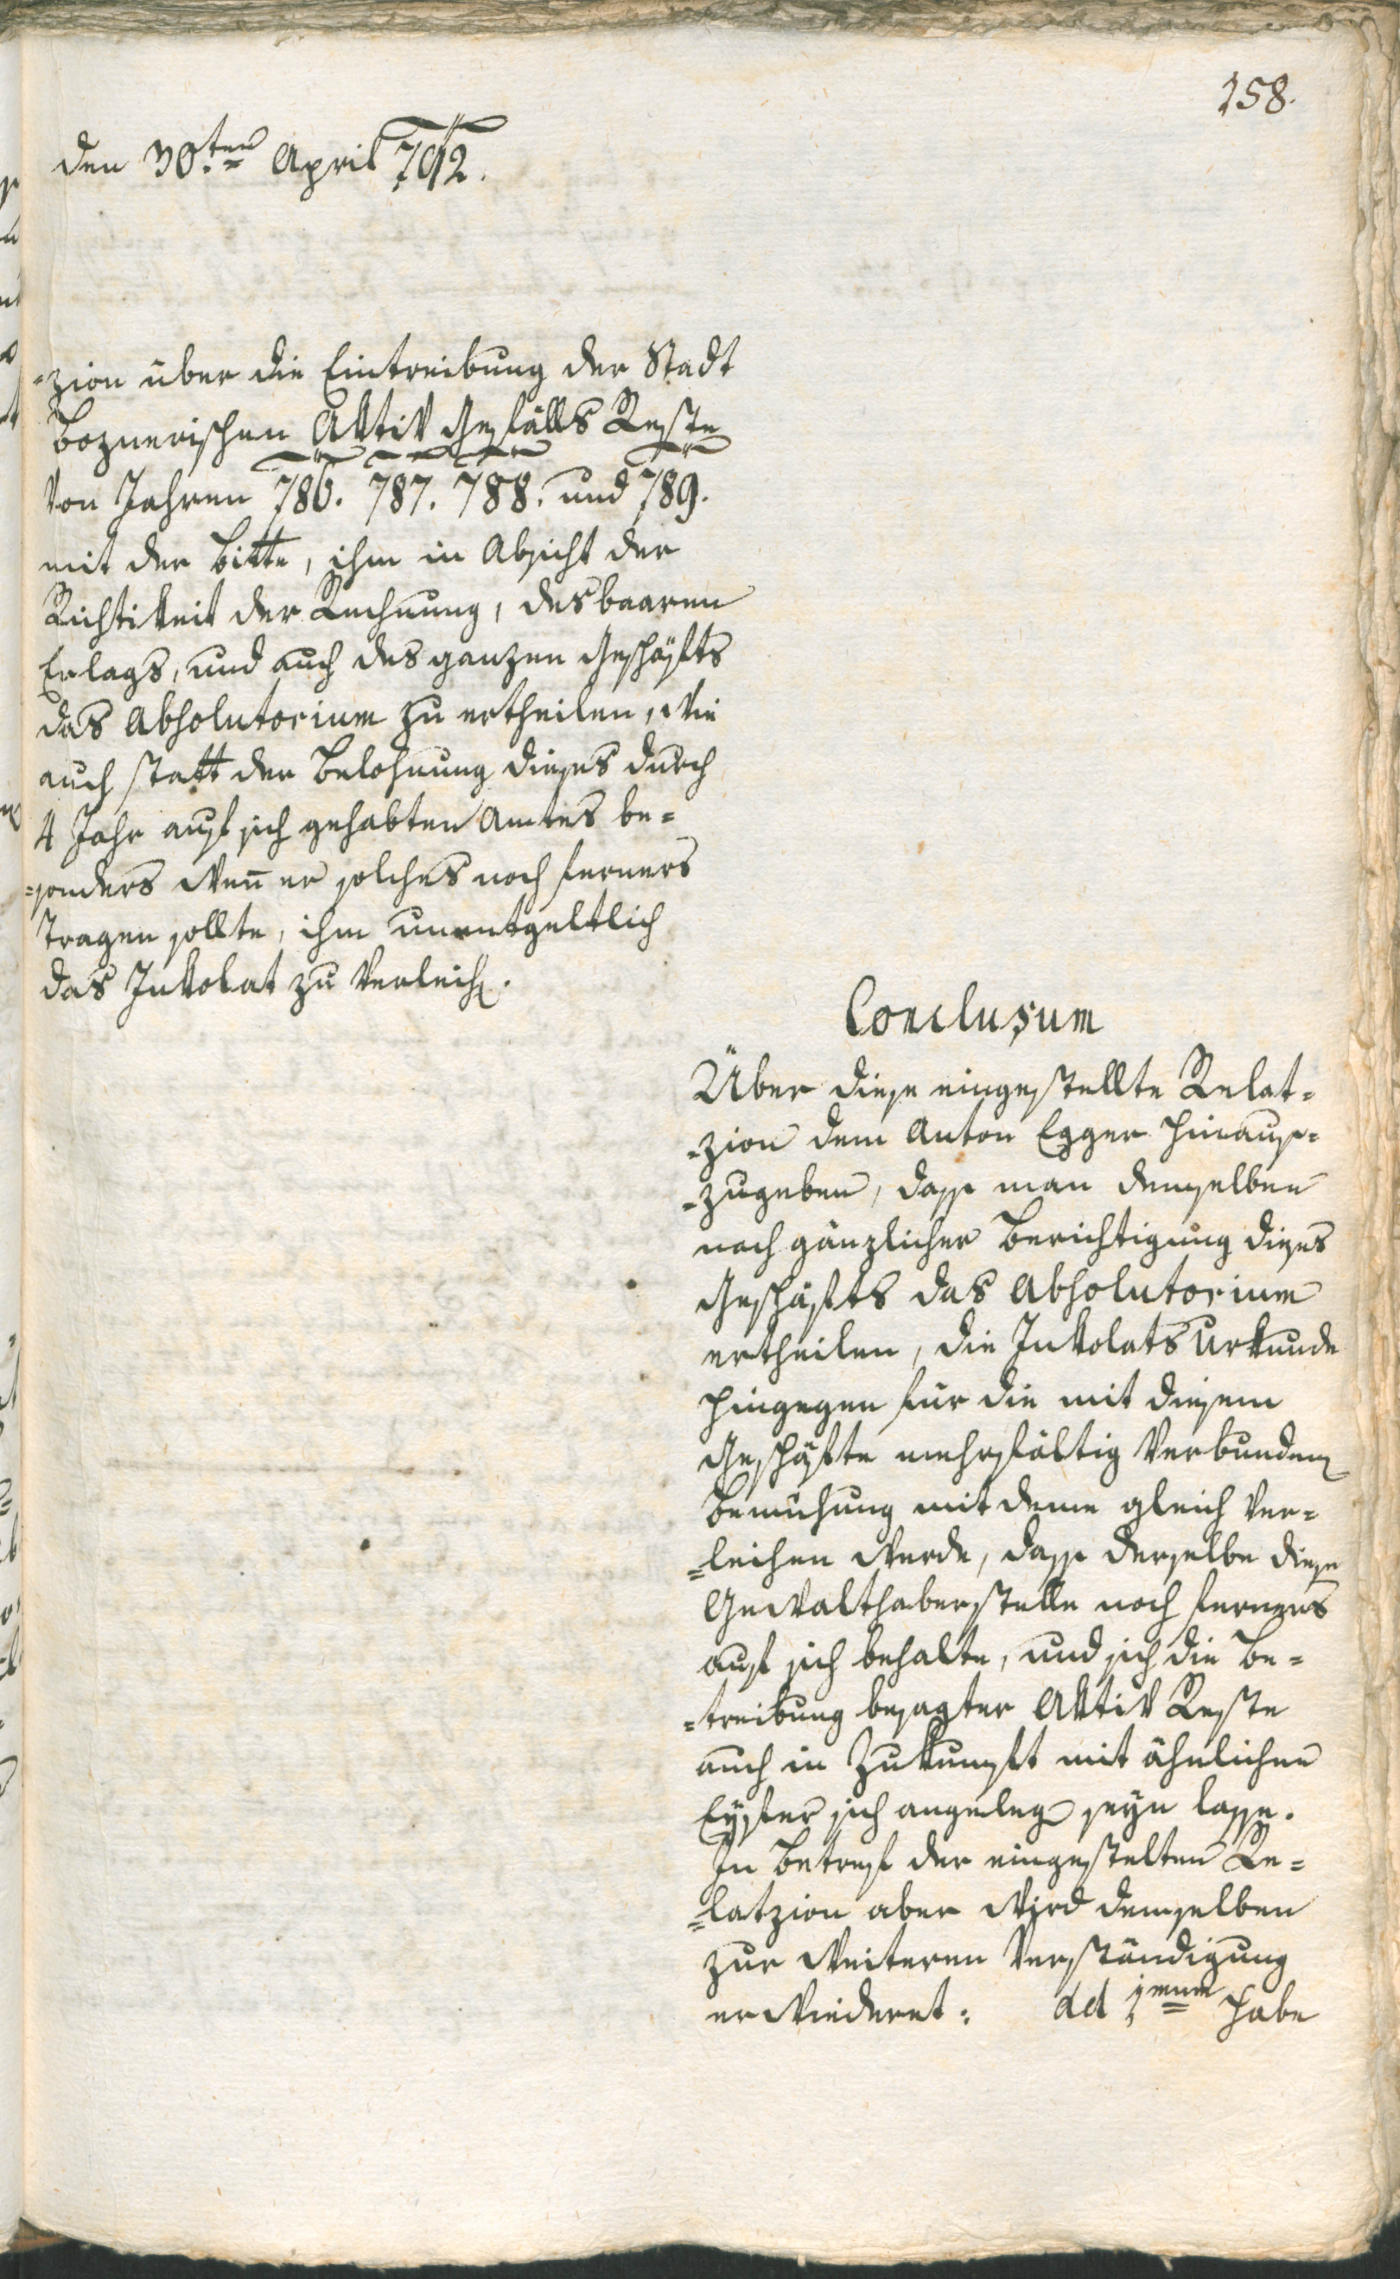 158.
den 30.ten April 792.
-zion über die Eintreibung der Stadt
Boznerischen Aktiv Gefälls Reste
von Jahren 786. 787. 788. und 789.
mit der Bitte, ihm in Absicht der
Richtikeit der Rechnung, des baaren
Erlags, und auch des ganzen Geschäfts
das Absolutorium zu ertheilen, wie
auch statt der Belohnung dieses durch
4 Jahr auf sich gehabten Amtes be=
=sonders wen̄ er solches noch ferners
tragen sollte, ihm unentgeltlich
das Inkolat zu verleich.
Conclusum
Über diese eingestellte Relat=
=zion dem Anton Egger hinaus=
=zugeben, dass man demselben
nach gänzlicher Berichtigung dieses
Geschäfts das Absolutorium
ertheilen, die Inkolats Urkunde
hingegen für die mit diesem
Geschäfte mehrfältig verbunden
Bemühung mit deme gleich ver=
=leihen werde, dass derselbe diese
Gewalthaberstelle noch ferners
auf sich behalte, und sich die Be=
=treibung besagter Aktiv Reste
auch in Zukunft mit ähnlichen
Eyfer sich angeleg seyn lasse.
In Betref der eingestelten Re=
=latzion aber wird demselben
zur weiteren Verständigung
erwiederet: ad 1mum habe